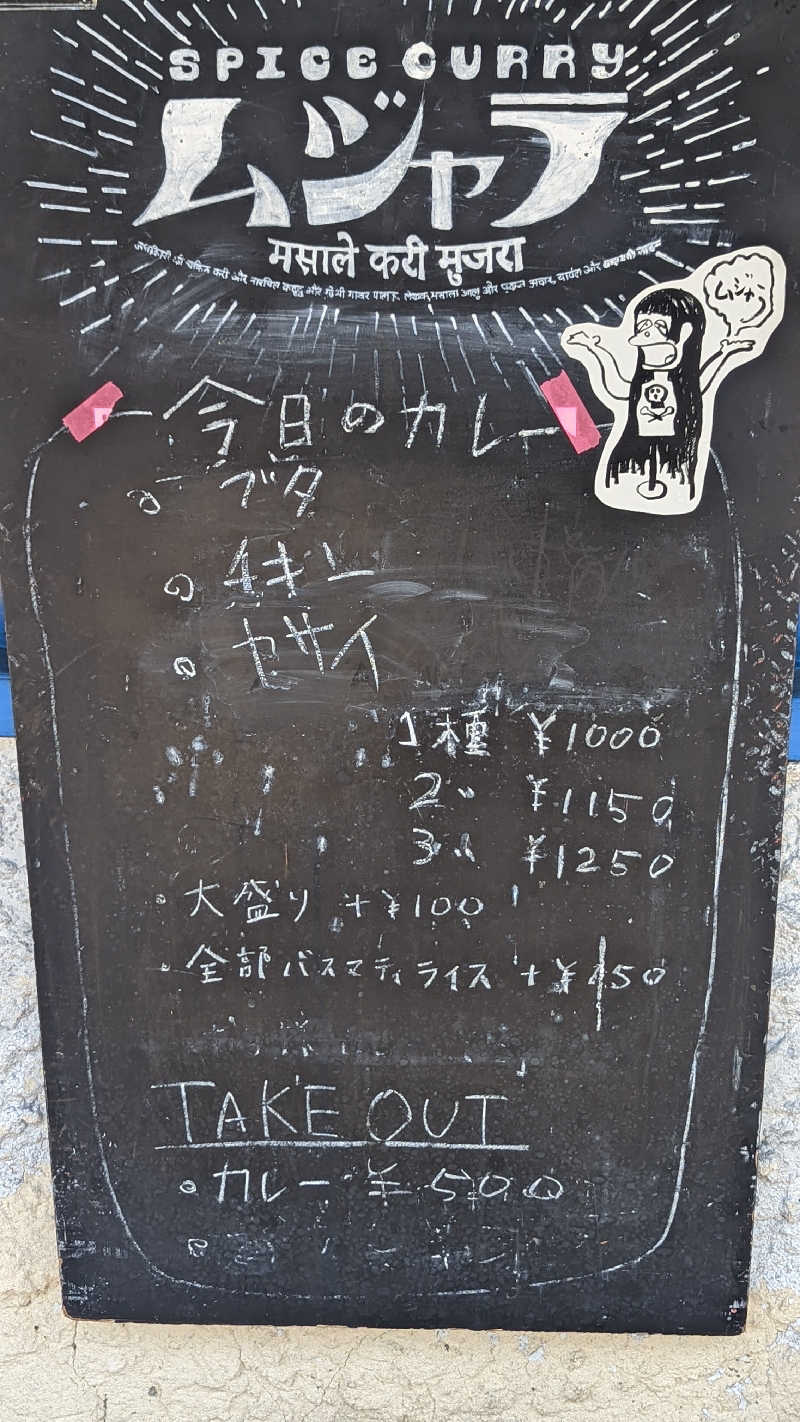 SPICE CURRY
ムジャラ
मसाले करी मुजरा
ムジャラ
今日のカレー
ブタ
チキン
ヤサイ
1種 ¥1000
2〃 ¥1150
3〃 ¥1250
・大盛り +¥100
・全部バスマティライス +¥150
TAKE OUT
・カレー ¥500